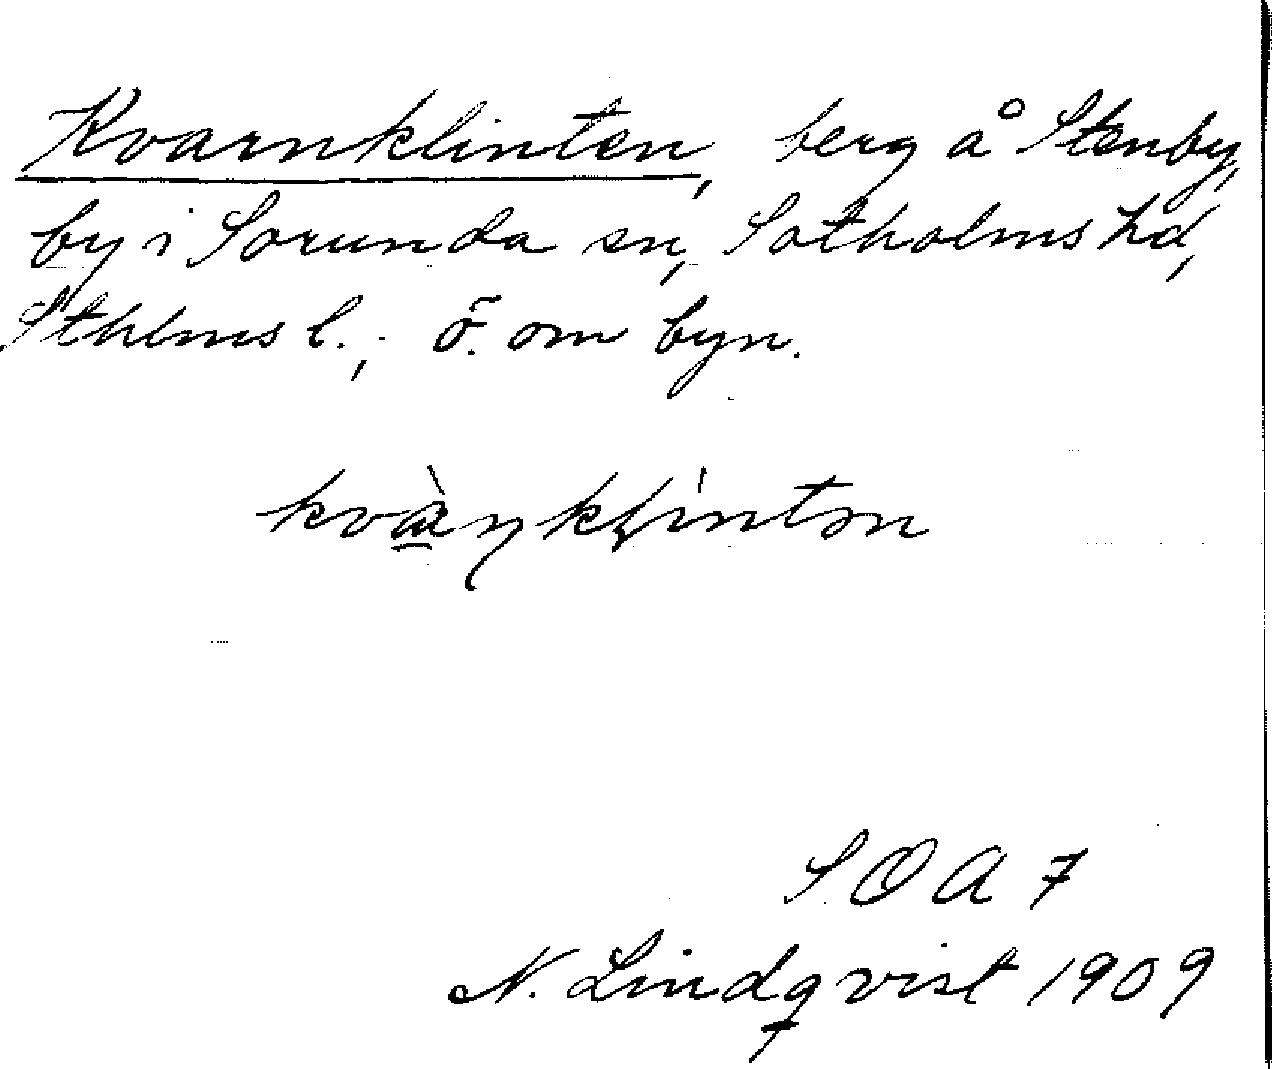 Kvarnklinten, berg å Stenby,
by i Sorunda sn, Sotholms hd,
Sthlms l.; ö. om byn.
SOA 7
N. Lindqvist 1909